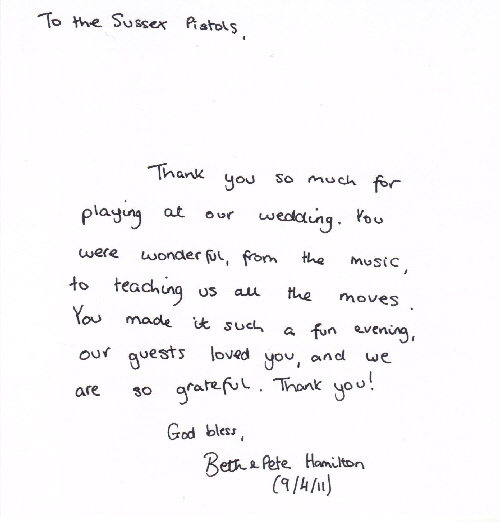 To the Sussex Pistols,
Thank you so much for
playing at our wedding. You
were wonderful, from the music,
to teaching us all the moves.
You made it such a fun evening,
our guests loved you, and we
are so grateful. Thank you!
God bless,
Beth & Pete Hamilton
(9/4/11)